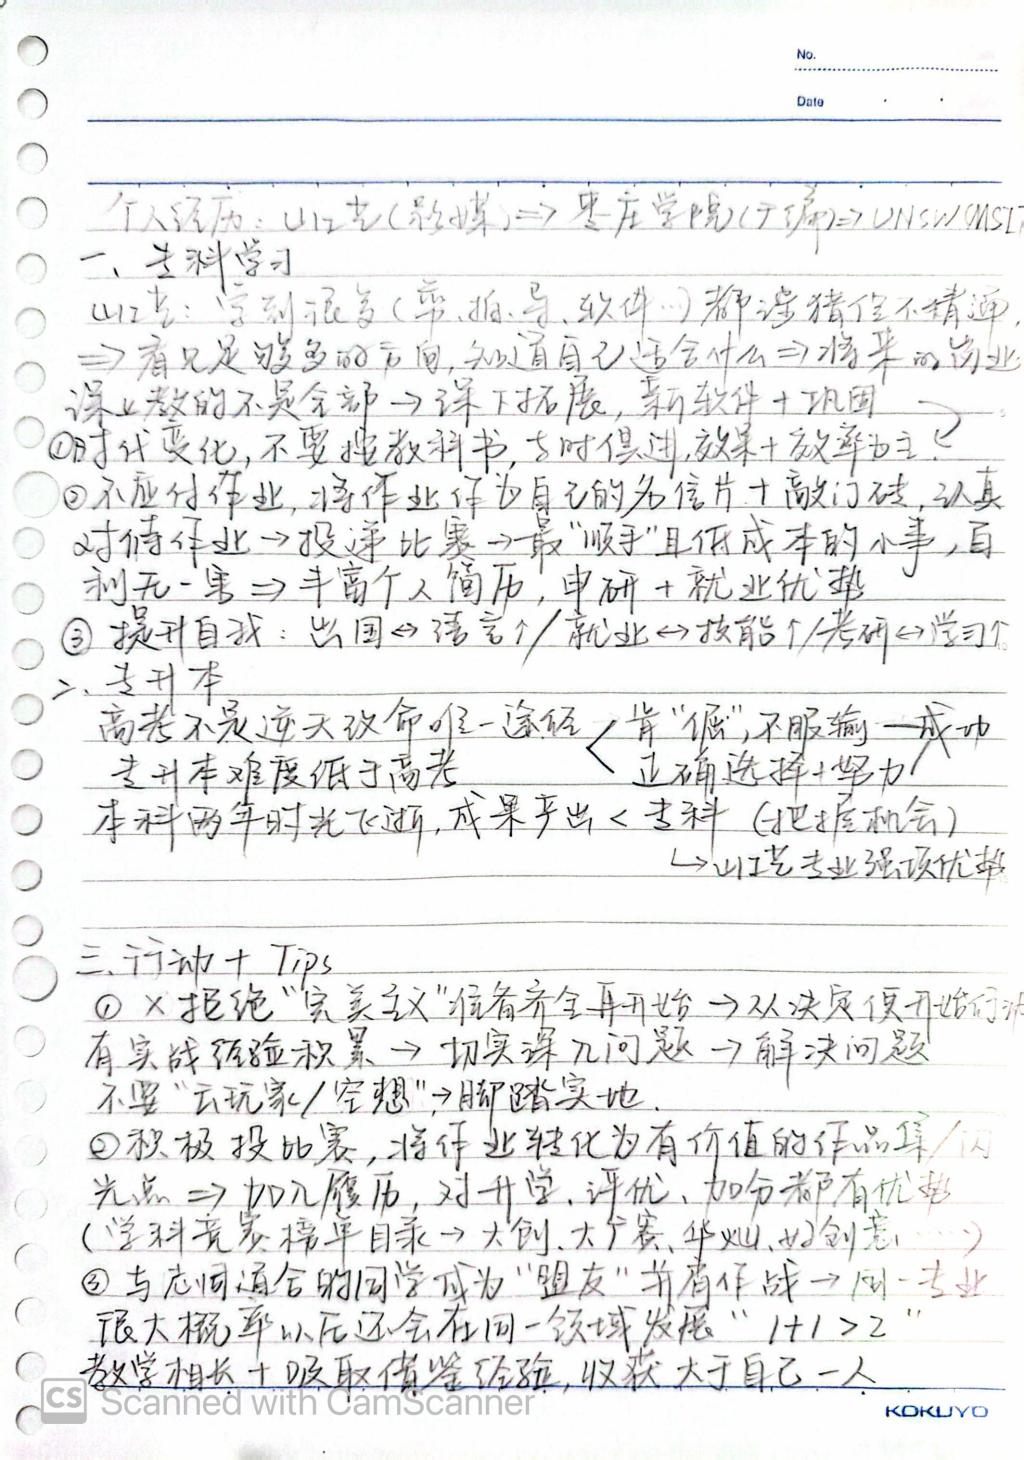 No.
Date
个人经历：山工艺(影媒)⇒枣庄学院(广编)⇒UNSW(MSIT
一、专科学习
山工艺：学到很多(剪、拍、导、软件…)都涉猎但不精通，
⇒看见足够多的方向，知道自己适合什么⇒将来的岗业
课上教的不是全部→课下拓展，新软件+巩固
①时代变化，不要按教科书，与时俱进，效果+效率为主
②不应付作业，将作业作为自己的名信片+敲门砖，认真
对待作业→投递比赛→最"顺手"且低成本的小事，百
利无一害⇒丰富个人简历，申研+就业优势
③提升自我：出国↔语言↑/就业↔技能↑/考研↔学习↑
二、专升本
高考不是逆天改命唯一途径<肯"倔"，不服输—成功
专升本难度低于高考 正确选择+努力
本科两年时光飞逝，成果产出<专科 (把握机会)
↳山工艺专业强项优势
三、行动+Tips
①×拒绝"完美主义"准备齐全再开始→从决定便开始行动
有实战经验积累→切实深入问题→解决问题
不要"云玩家/空想"，→脚踏实地.
②积极投比赛，将作业转化为有价值的作品集/闪
光点⇒加入履历，对升学、评优、加分都有优势
(学科竞赛榜单目录→大创、大广赛、华灿、好创意……)
③与志同道合的同学成为"盟友"并肩作战→同一专业
很大概率以后还会在同一领域发展"1+1>2"
教学相长+吸取借鉴经验，收获大于自己一人
CS Scanned with CamScanner
KOKUYO